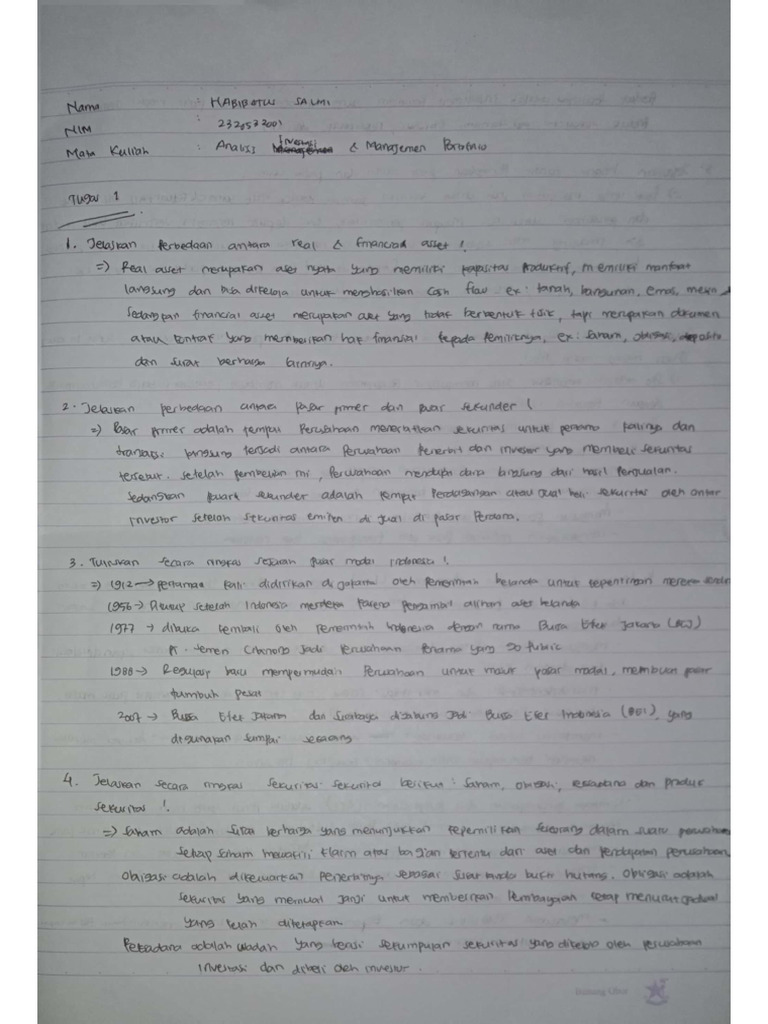 Nama : HABIBATUS SALMI
NIM : 2320532001
Mata Kuliah : Analisis Investasi & Manajemen Portofolio
Tugas 1
1. Jelaskan Perbedaan antara real & financial asset !
=) Real asset merupakan aset nyata yang memiliki kapasitas produktif, memiliki manfaat
langsung dan bisa dikelola untuk menghasilkan cash flow ex: tanah, bangunan, emas, mesin
Sedangkan financial asset merupakan aset yang tidak berbentuk fisik, tapi merupakan dokumen
atau kontrak yang memberikan hak finansial kepada pemiliknya, ex: saham, obligasi, deposito
dan surat berharga lainnya.
2. Jelaskan perbedaan antara pasar primer dan pasar sekunder !
=) Pasar primer adalah tempat Perusahaan menerbitkan sekuritas untuk pertama kalinya dan
transaksi langsung terjadi antara Perusahaan Penerbit dan investor yang membeli sekuritas
tersebut. setelah pembelian ini, Perusahaan mendapa dana langsung dari hasil Penjualan.
Sedangkan pasar sekunder adalah tempat Perdagangan atau jual beli sekuritas oleh antar
investor setelah sekuritas emiten di jual di pasar Perdana.
3. Tuliskan secara ringkas sejarah pasar modal Indonesia !
=) 1912 → pertama kali didirikan di jakarta oleh Pemerintah belanda untuk kepentingan mereka
1956 → setelah Indonesia merdeka karena pengambil alihan aset belanda
1977 → dibuka kembali oleh pemerintah Indonesia dengan nama Bursa Efek Jakarta (BEJ)
Pt. Semen Cibinong jadi Perusahaan Pertama yang go public
1988 → Regulasi baru mempermudah Perusahaan untuk masuk pasar modal, membuat pasar
tumbuh pesat
2007 → Bursa Efek Jakarta dan Surabaya digabung jadi Bursa Efek Indonesia (BEI), yang
digunakan sampai sekarang
4. Jelaskan secara ringkas sekuritas-sekuritas berikut : saham, obligasi, reksadana dan produk
sekuritas !
=) Saham adalah surat berharga yang menunjukkan kepemilikan seseorang dalam suatu perusahaan
setiap saham mewakili klaim atas bagian tertentu dari aset dan pendapatan perusahaan.
Obligasi adalah dikeluarkan penerbitnya sebagai surat tanda bukti hutang. Obligasi adalah
sekuritas yang memuat janji untuk memberikan pembayaran tetap menurut jadwal
yang telah ditetapkan.
Reksadana adalah wadah yang berisi sekumpulan sekuritas yang dikelola oleh perusahaan
Investasi dan dibeli oleh investor.